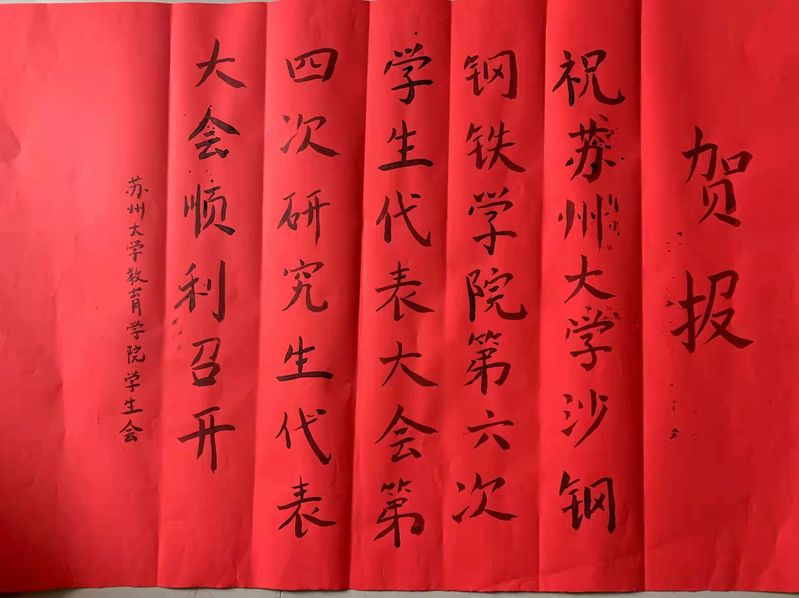 贺报
祝苏州大学沙钢
钢铁学院第六次
学生代表大会第
四次研究生代表
大会顺利召开
苏州大学教育学院学生会